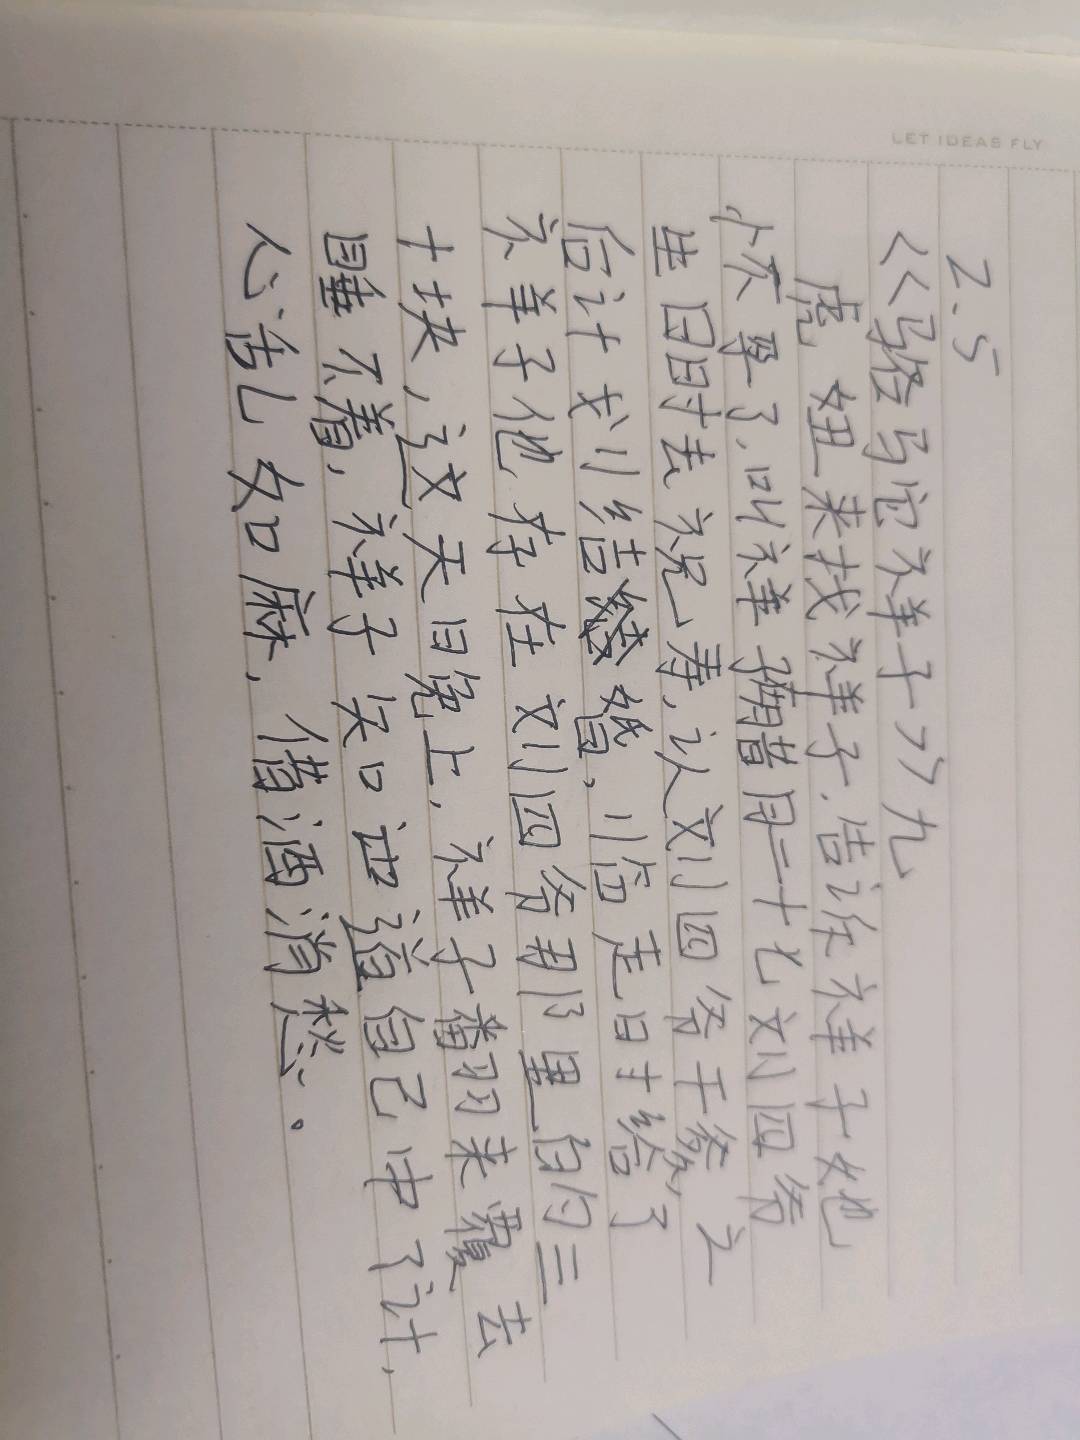 LET IDEAS FLY
2.5
《骆驼祥子》九
虎妞来找祥子.告诉祥子她
怀孕了.叫祥子腊月二十七刘四爷
生日时去祝寿,认刘四爷干爹,之
后计划结婚,临走时给了
祥子他存在刘四爷那里的三
十块,这天晚上,祥子翻来覆去
睡不着,祥子知道自己中了计,
心乱如麻,借酒消愁.